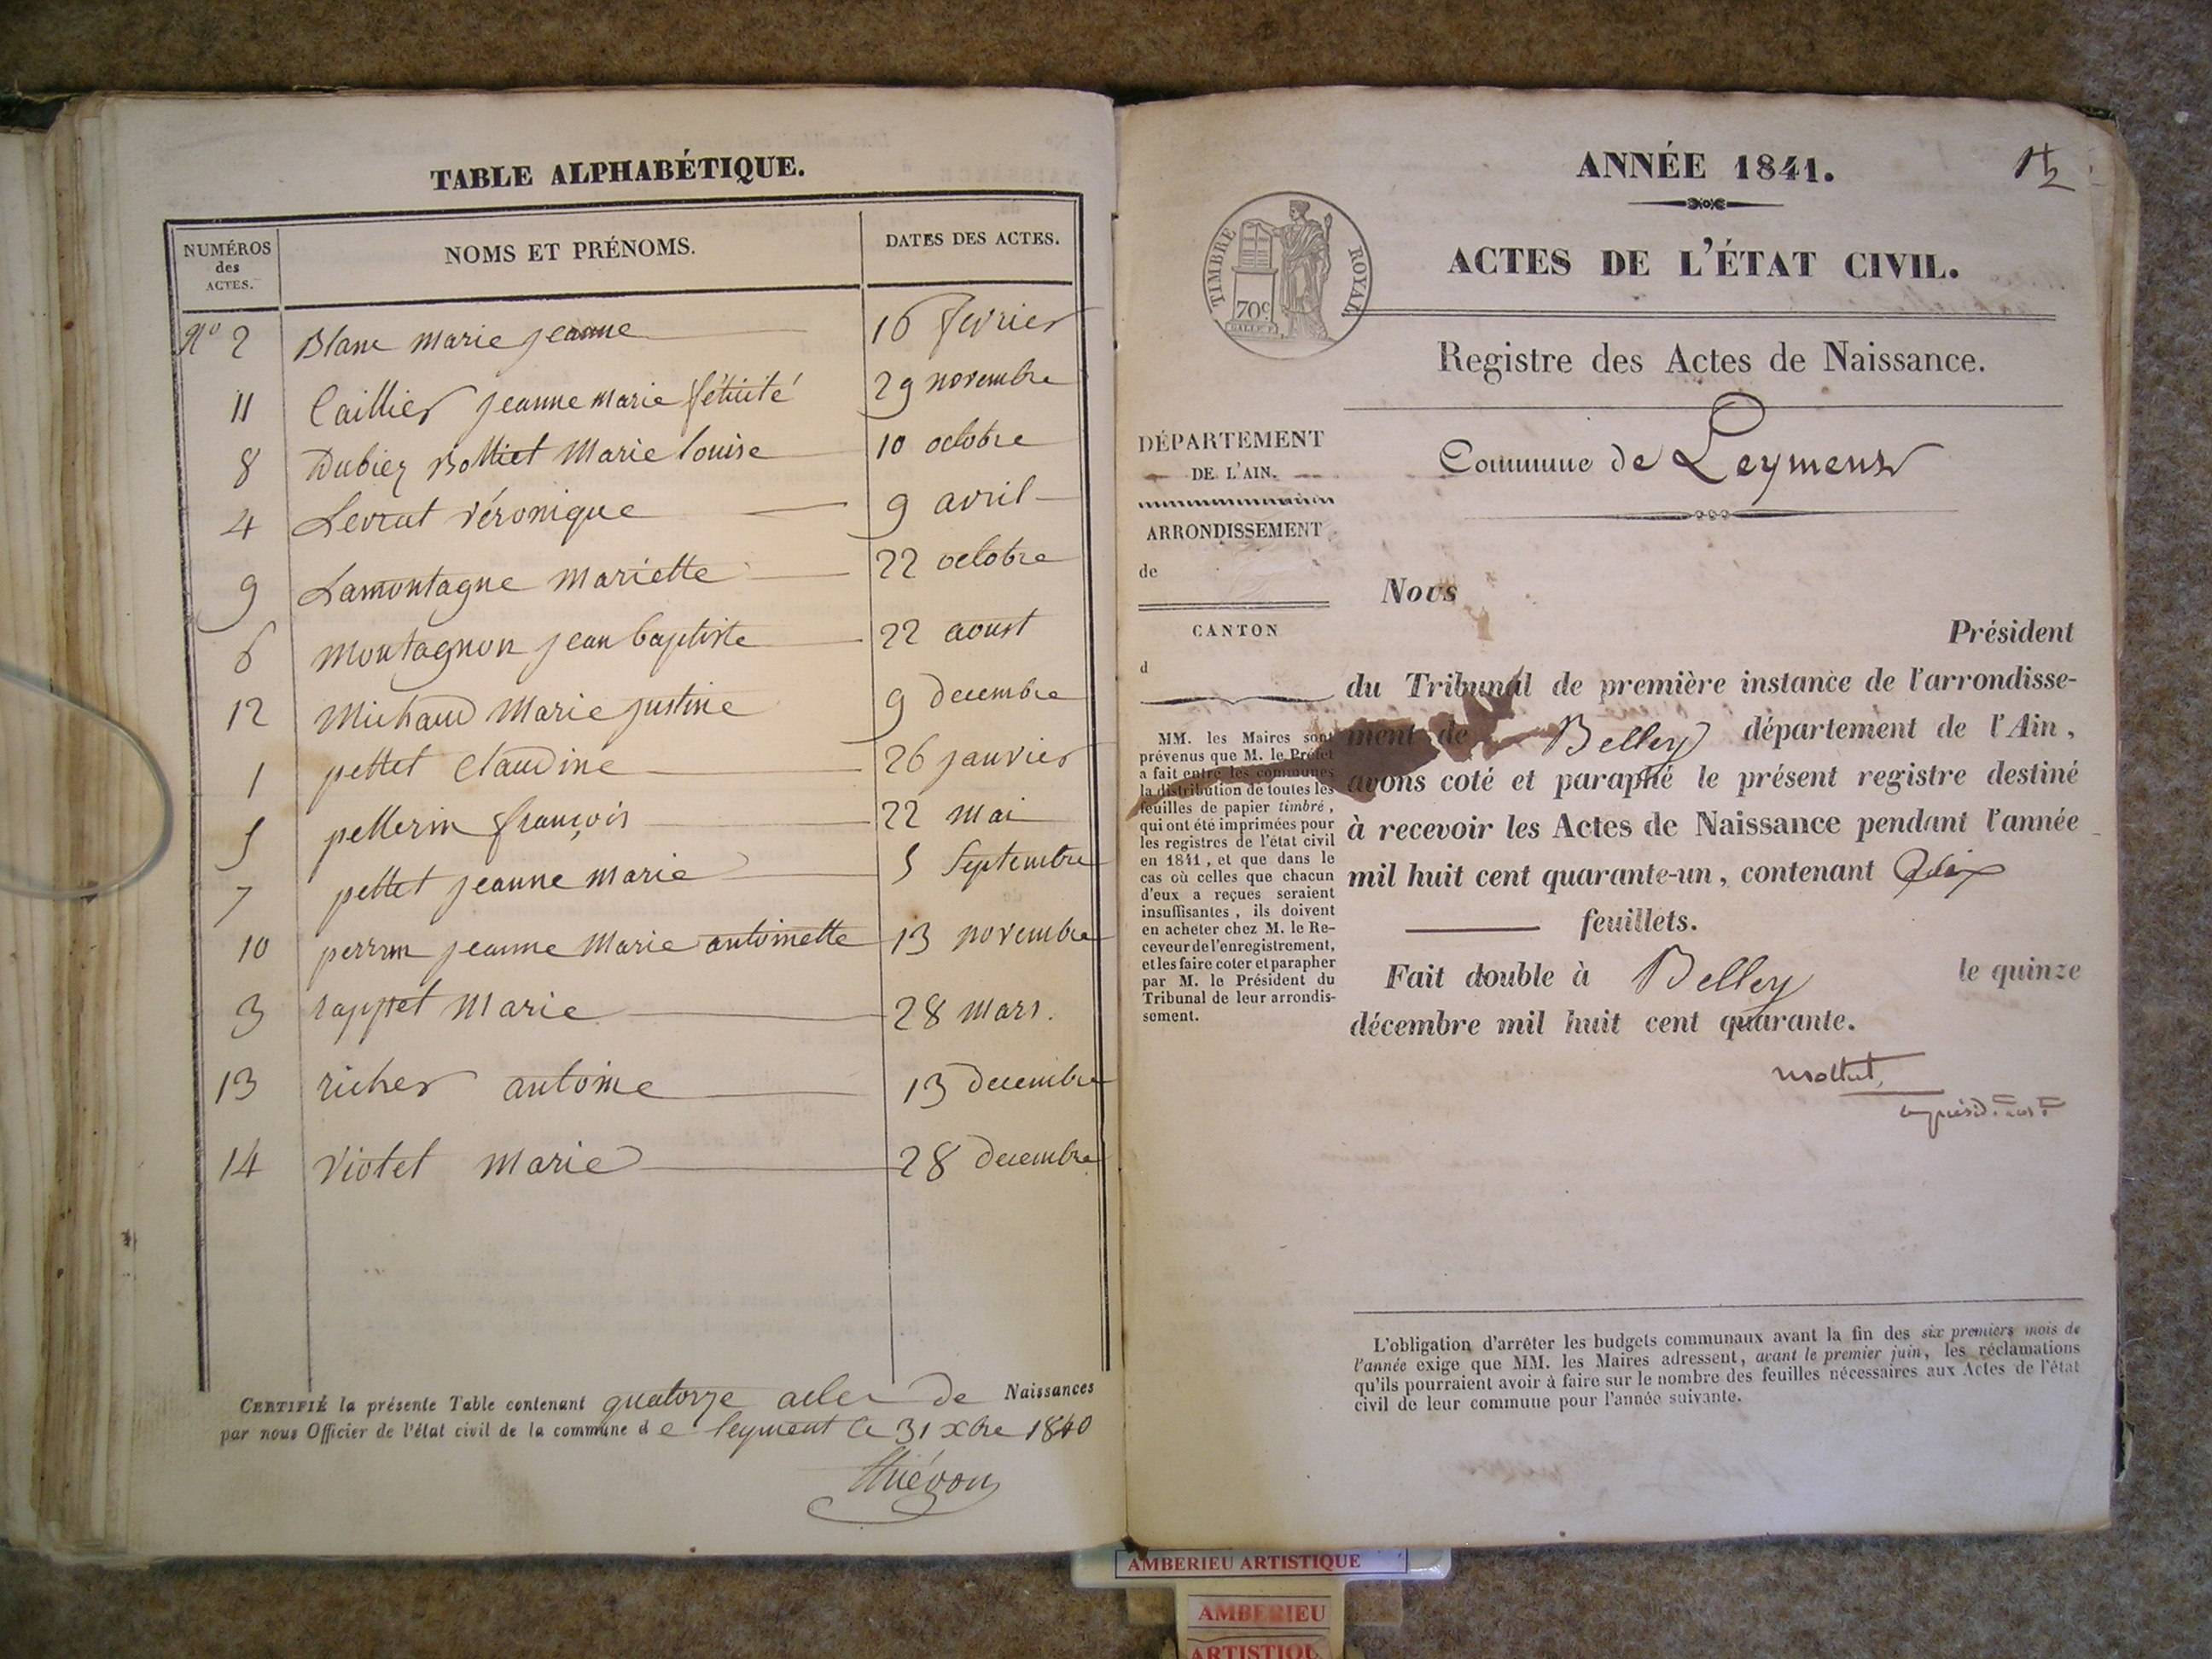 TABLE ALPHABÉTIQUE.
NUMÉROS des ACTES.
NOMS ET PRÉNOMS.
DATES DES ACTES.
N° 2 Blanc marie jeanne 16 fevrier
11 Caillier jeanne marie féticité 29 novembre
8 Dubiez Bolliet Marie louise 10 octobre
4 Levrat véronique 9 avril
9 Lamontagne mariette 22 octobre
6 montagnon jean baptiste 22 aoust
12 Michaud Marie justine 9 decembre
1 pettet Claudine 26 janvier
5 pellerin françois 22 mai
7 pettet jeanne marie 5 Septembre
10 perrin jeanne Marie antoinette 13 novembre
3 rappet Marie 28 mars.
13 richer antoine 13 decembre
14 Viotet marie 28 decembre
CERTIFIÉ la présente Table contenant quatorze actes de Naissances
par nous Officier de l'état civil de la commune de leyment le 31 xbre 1840
ANNÉE 1841.
TIMBRE ROYAL
70c
ACTES DE L'ÉTAT CIVIL.
Registre des Actes de Naissance.
Commune de Leyment
DÉPARTEMENT
DE L'AIN.
ARRONDISSEMENT
de
CANTON
d
MM. les Maires sont
prévenus que M. le Préfet
a fait entre les communes
la distribution de toutes les
feuilles de papier timbré,
qui ont été imprimées pour
les registres de l'état civil
en 1841, et que dans le
cas où celles que chacun
d'eux a reçues seraient
insuffisantes, ils doivent
en acheter chez M. le Re-
ceveur de l'enregistrement,
et les faire coter et parapher
par M. le Président du
Tribunal de leur arrondis-
sement.
Nous
Président
du Tribunal de première instance de l'arrondisse-
ment de Belley département de l'Ain,
avons coté et paraphé le présent registre destiné
à recevoir les Actes de Naissance pendant l'année
mil huit cent quarante-un, contenant dix
feuillets.
Fait double à Belley le quinze
décembre mil huit cent quarante.
L'obligation d'arrêter les budgets communaux avant la fin des six premiers mois de
l'année exige que MM. les Maires adressent, avant le premier juin, les réclamations
qu'ils pourraient avoir à faire sur le nombre des feuilles nécessaires aux Actes de l'état
civil de leur commune pour l'année suivante.
AMBERIEU ARTISTIQUE
AMBERIEU
ARTISTIQU